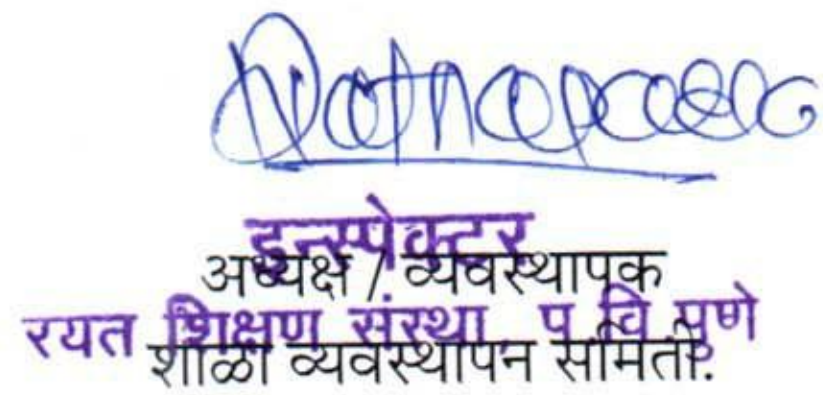 इन्स्पेक्टर
अध्यक्ष / व्यवस्थापक
रयत शिक्षण संस्था, प वि पुणे
शाळा व्यवस्थापन समिती.